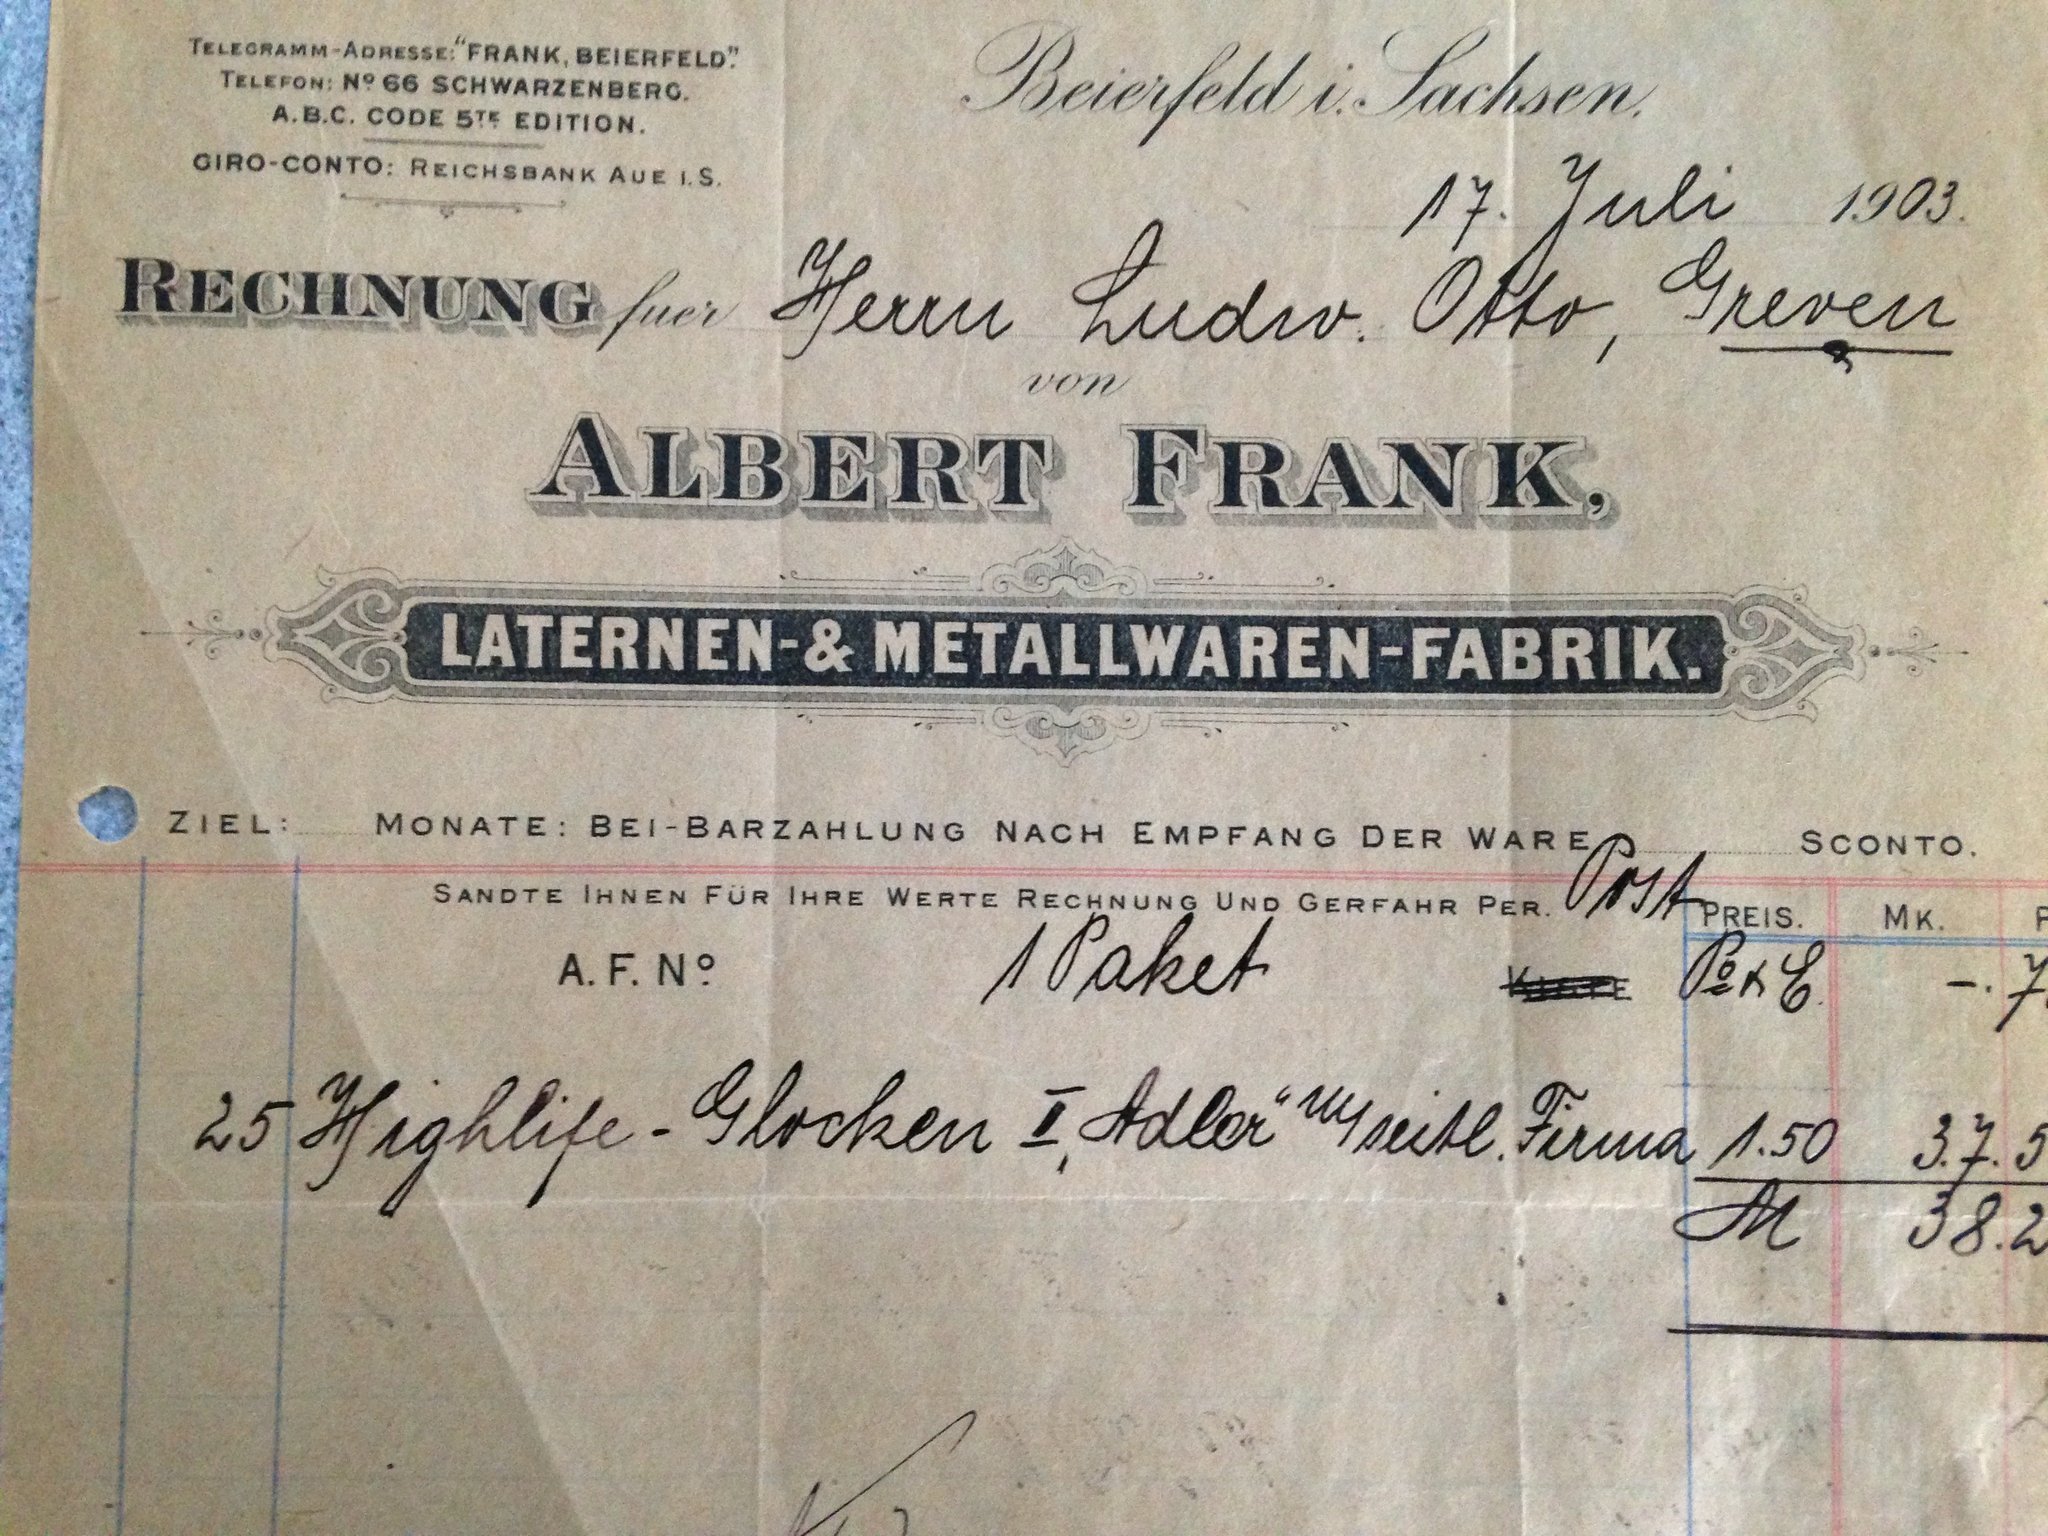 TELEGRAMM-ADRESSE: "FRANK, BEIERFELD".
TELEFON: No 66 SCHWARZENBERG.
A.B.C. CODE 5TE EDITION.
GIRO-CONTO: REICHSBANK AUE I.S.
Beierfeld i. Sachsen.
17. Juli 1903.
RECHNUNG fuer Herrn Ludw. Otto, Greven
von
ALBERT FRANK,
LATERNEN-& METALLWAREN-FABRIK.
ZIEL: MONATE: BEI-BARZAHLUNG NACH EMPFANG DER WARE SCONTO.
SANDTE IHNEN FÜR IHRE WERTE RECHNUNG UND GERFAHR PER. Post PREIS. MK. P
A.F. No 1 Paket -.7
25 Highlife-Glocken II „Adler“ seitl. Firma 1.50 37.5
M 38.2